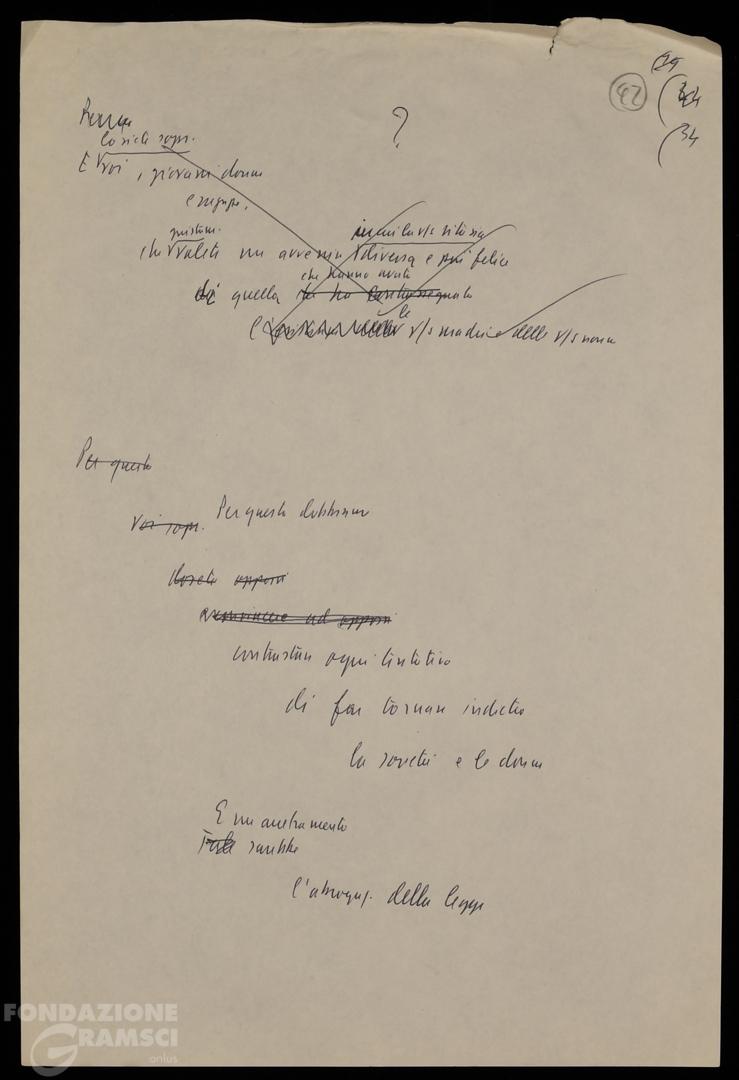 (29
42
(34
(34
?
lo siete sopr.
E voi, giovani donne
che volete un avvenire diverso e più felice
che hanno avuto
di quella
v/s madri e delle v/s nonne
Per questo
Voi sopr. Per questo dobbiamo
dovete opporvi
convincere ad opporvi
contrastare ogni tentativo
di far tornare indietro
la società e le donne
E un arretramento
Tale sarebbe
l'abrogaz. della legge
FONDAZIONE
GRAMSCI
onlus